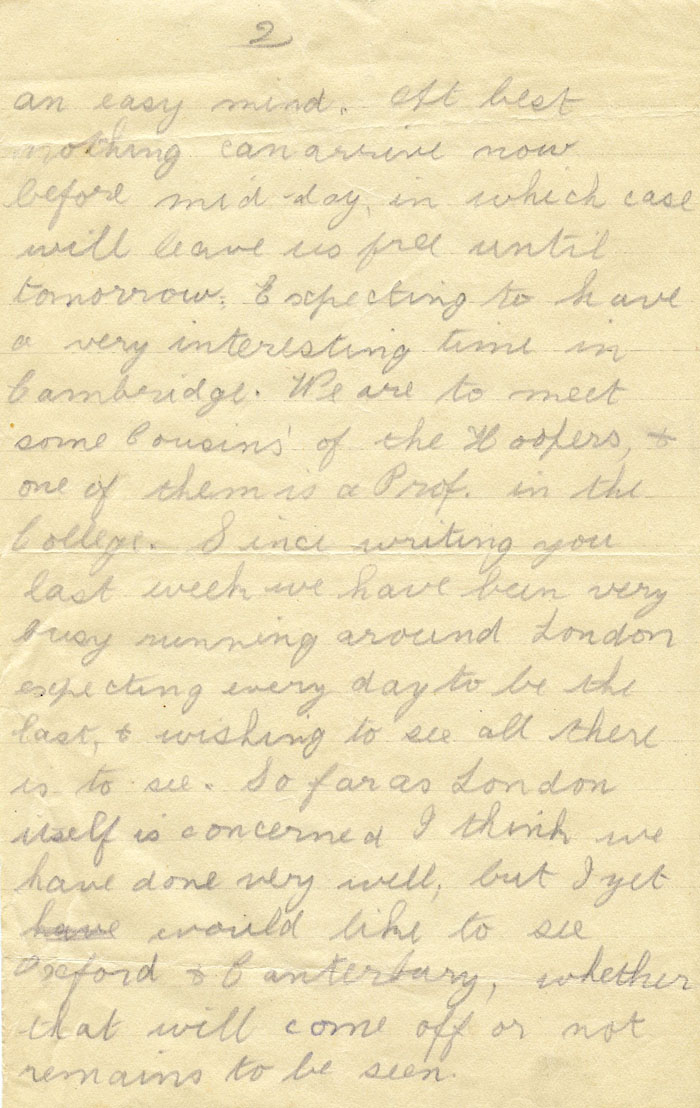 2
an easy mind. At best
nothing can arrive now
before mid-day, in which case
will leave us free until
tomorrow. Expecting to have
a very interesting time in
Cambridge. We are to meet
some Cousins' of the Hoopers, &
one of them is a Prof. in the
College. Since writing you
last week we have been very
busy running around London
expecting every day to be the
last, & wishing to see all there
is to see. So far as London
itself is concerned I think we
have done very well, but I yet
have would like to see
Oxford & Canterbury, whether
that will come off or not
remains to be seen.